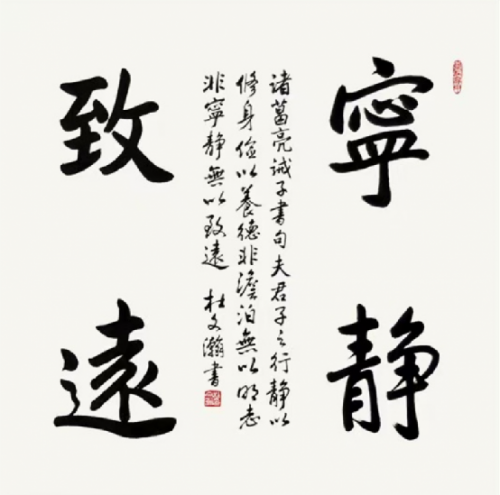 寧靜
諸葛亮诫子書句夫君子之行靜以
修身儉以養德非澹泊無以明志
非寧靜無以致遠 杜文瀚書
致遠